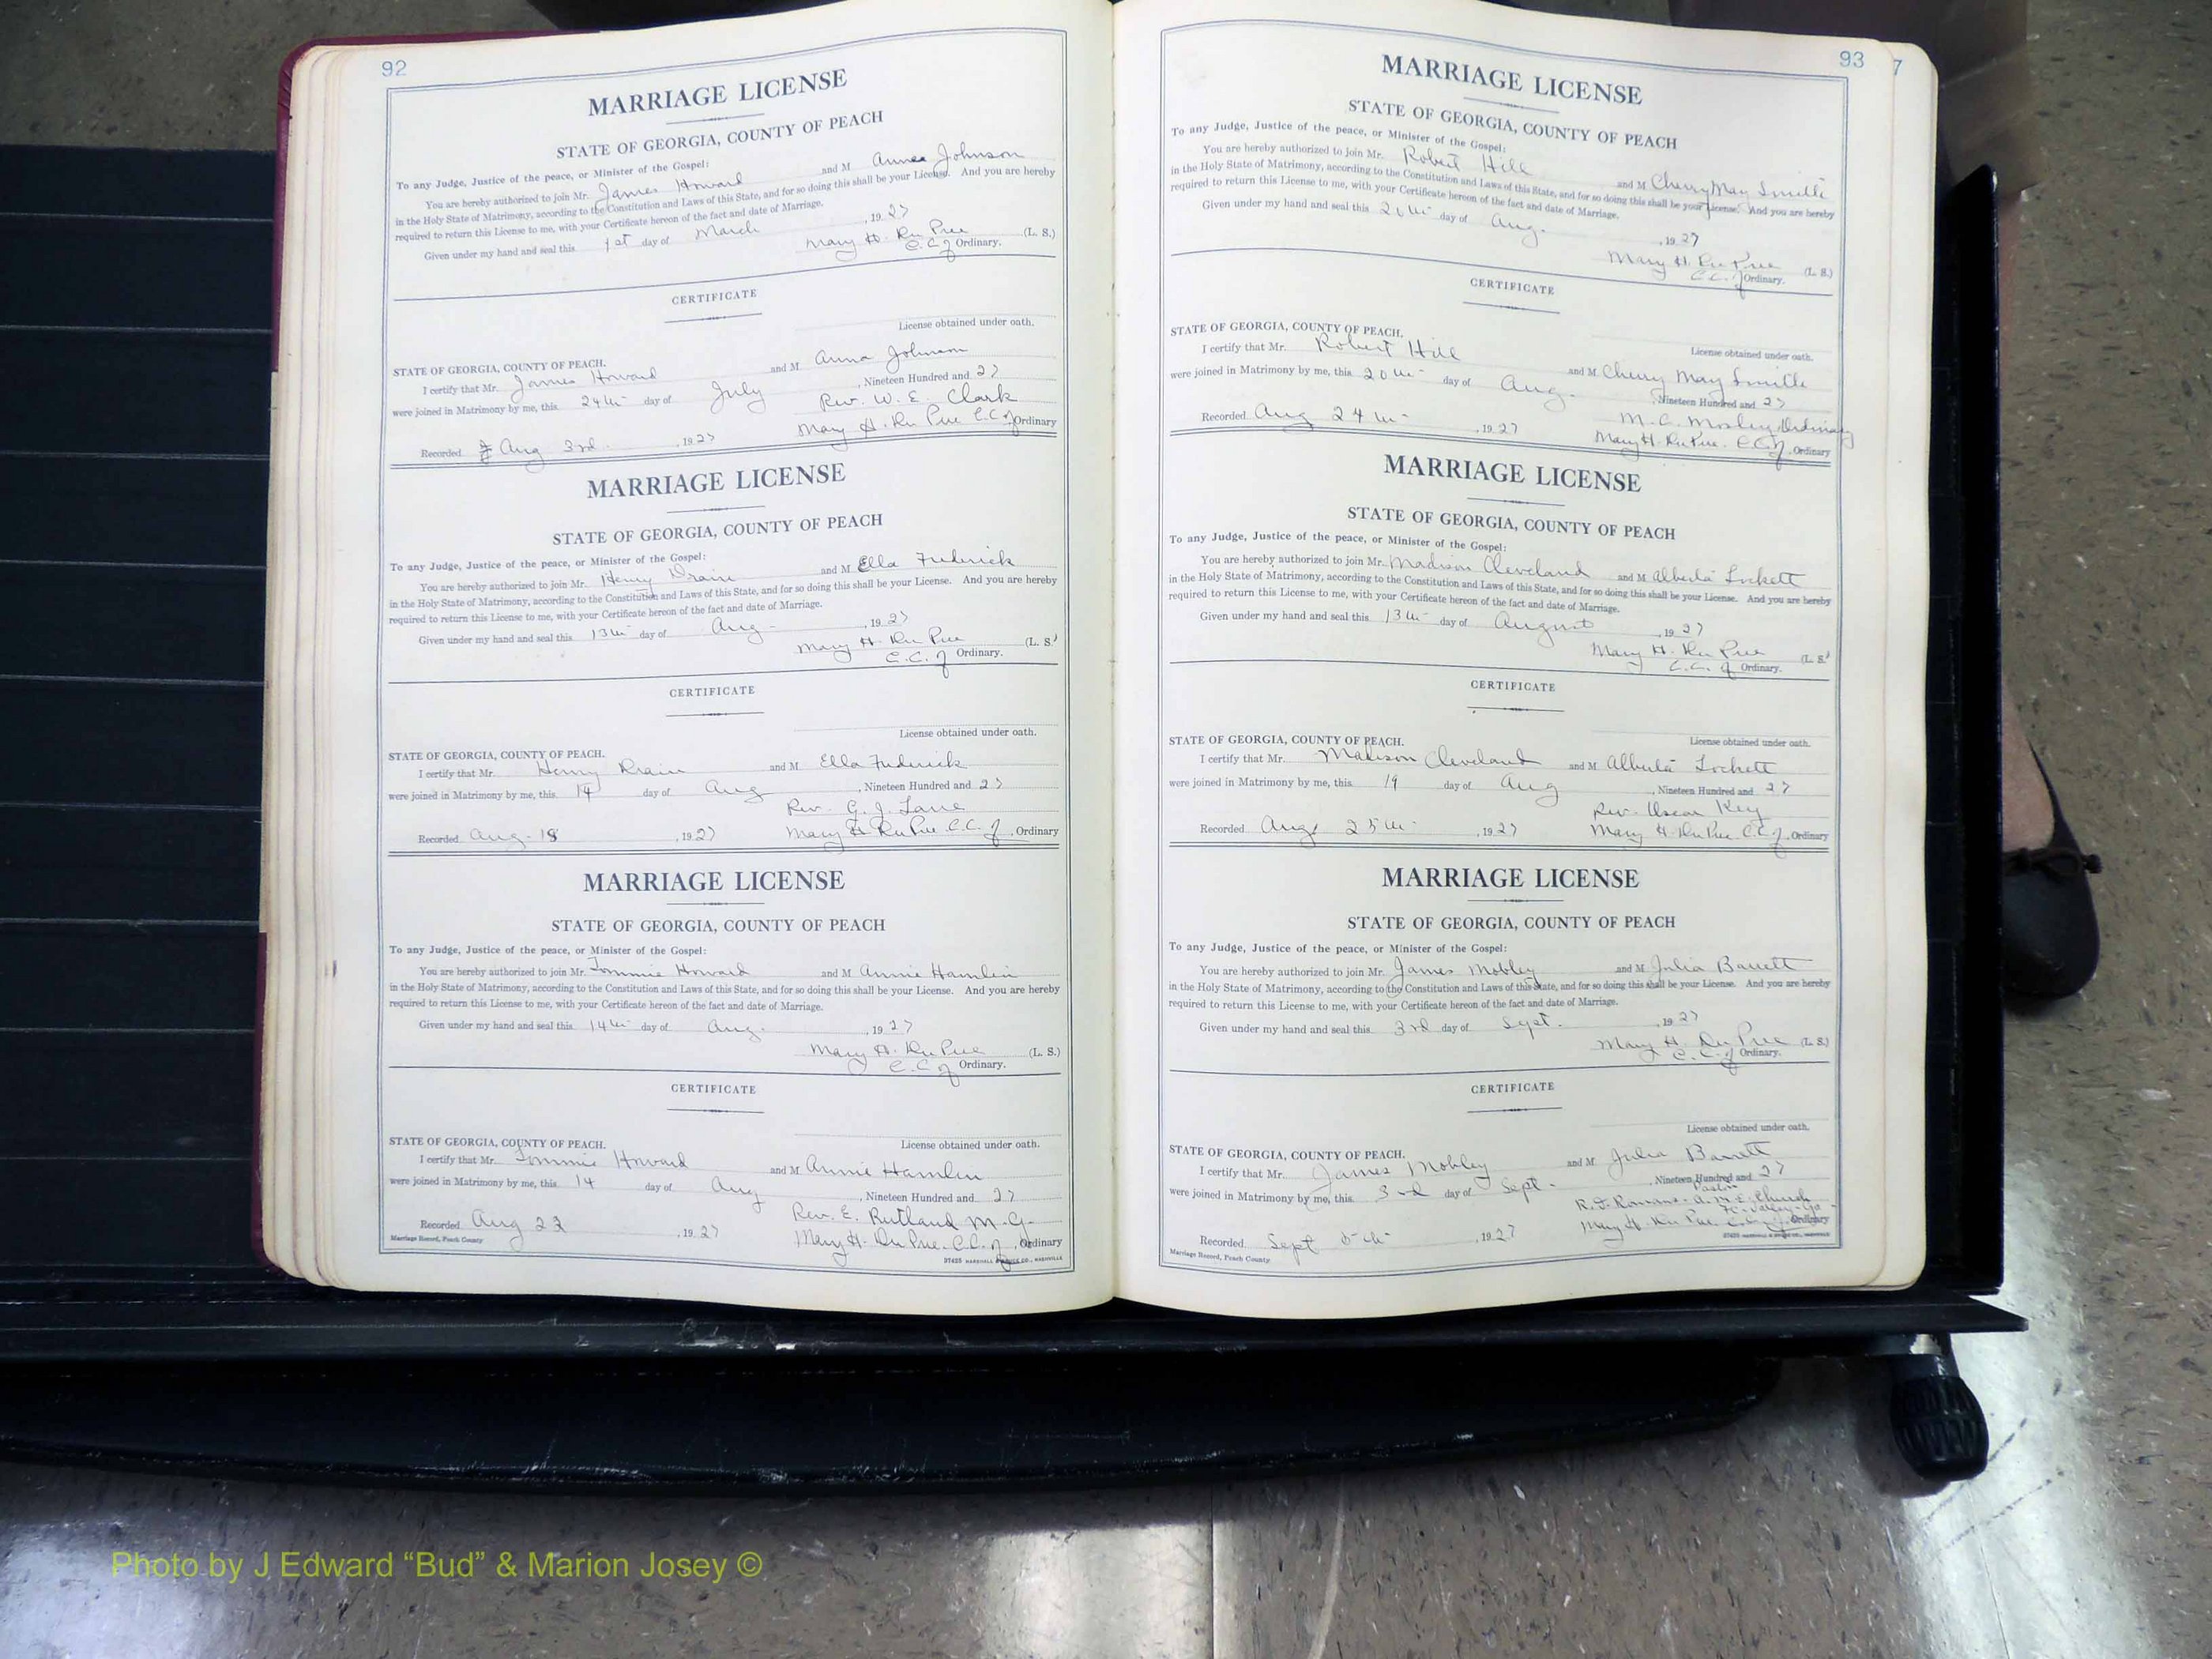 92
MARRIAGE LICENSE
STATE OF GEORGIA, COUNTY OF PEACH
To any Judge, Justice of the peace, or Minister of the Gospel:
You are hereby authorized to join Mr. James Howard and M Annea Johnson
in the Holy State of Matrimony, according to the Constitution and Laws of this State, and for so doing this shall be your License. And you are hereby
required to return this License to me, with your Certificate hereon of the fact and date of Marriage.
Given under my hand and seal this 1st day of March , 19 27
Mary H. Du Pree (L. S.)
C. C. O Ordinary.
CERTIFICATE
License obtained under oath.
STATE OF GEORGIA, COUNTY OF PEACH.
I certify that Mr. James Howard and M Anna Johnson
were joined in Matrimony by me, this 24th day of July , Nineteen Hundred and 27
Rev. W. E. Clark
Recorded Aug 3rd. , 19 27 Mary H. Du Pree C. C. O Ordinary
MARRIAGE LICENSE
STATE OF GEORGIA, COUNTY OF PEACH
To any Judge, Justice of the peace, or Minister of the Gospel:
You are hereby authorized to join Mr. Henry Drain and M Ella Frederick
in the Holy State of Matrimony, according to the Constitution and Laws of this State, and for so doing this shall be your License. And you are hereby
required to return this License to me, with your Certificate hereon of the fact and date of Marriage.
Given under my hand and seal this 13th day of Aug , 19 27
Mary H. Du Pree (L. S.)
C. C. O Ordinary.
CERTIFICATE
License obtained under oath.
STATE OF GEORGIA, COUNTY OF PEACH.
I certify that Mr. Henry Drain and M Ella Frederick
were joined in Matrimony by me, this 14 day of Aug , Nineteen Hundred and 27
Rev. G. J. Lane
Recorded Aug-18 , 19 27 Mary H. Du Pree. C. C. O , Ordinary
MARRIAGE LICENSE
STATE OF GEORGIA, COUNTY OF PEACH
To any Judge, Justice of the peace, or Minister of the Gospel:
You are hereby authorized to join Mr. Tommie Howard and M Annie Hamlin
in the Holy State of Matrimony, according to the Constitution and Laws of this State, and for so doing this shall be your License. And you are hereby
required to return this License to me, with your Certificate hereon of the fact and date of Marriage.
Given under my hand and seal this 14th day of Aug. , 19 27
Mary H. Du Pree (L. S.)
C. C. O Ordinary.
CERTIFICATE
License obtained under oath.
STATE OF GEORGIA, COUNTY OF PEACH.
I certify that Mr. Tommie Howard and M Annie Hamlin
were joined in Matrimony by me, this 14 day of Aug , Nineteen Hundred and 27
Rev. E. Rutland M. G.
Recorded Aug 23 , 19 27 Mary H. Du Pree. C. C. O , Ordinary
Marriage Record, Peach County
37425 MARSHALL & BRUCE CO., NASHVILLE
93 7
MARRIAGE LICENSE
STATE OF GEORGIA, COUNTY OF PEACH
To any Judge, Justice of the peace, or Minister of the Gospel:
You are hereby authorized to join Mr. Robert Hill and M Cherry May Smith
in the Holy State of Matrimony, according to the Constitution and Laws of this State, and for so doing this shall be your License. And you are hereby
required to return this License to me, with your Certificate hereon of the fact and date of Marriage.
Given under my hand and seal this 20th day of Aug. , 19 27
Mary H. Du Pree (L. S.)
C. C. O Ordinary.
CERTIFICATE
License obtained under oath.
STATE OF GEORGIA, COUNTY OF PEACH.
I certify that Mr. Robert Hill and M Cherry May Smith
were joined in Matrimony by me, this 20th day of Aug. , Nineteen Hundred and 27
M. C. Mosley, Ordinary
Recorded Aug 24th , 19 27 Mary H. Du Pree. C. C. O , Ordinary
MARRIAGE LICENSE
STATE OF GEORGIA, COUNTY OF PEACH
To any Judge, Justice of the peace, or Minister of the Gospel:
You are hereby authorized to join Mr. Madison Cleveland and M Alberta Lockett
in the Holy State of Matrimony, according to the Constitution and Laws of this State, and for so doing this shall be your License. And you are hereby
required to return this License to me, with your Certificate hereon of the fact and date of Marriage.
Given under my hand and seal this 13th day of August , 19 27
Mary H. Du Pree (L. S.)
C. C. O Ordinary.
CERTIFICATE
License obtained under oath.
STATE OF GEORGIA, COUNTY OF PEACH.
I certify that Mr. Madison Cleveland and M Alberta Lockett
were joined in Matrimony by me, this 19 day of Aug , Nineteen Hundred and 27
Rev. Oscar Key
Recorded Aug. 25th , 19 27 Mary H. Du Pree C. C. O , Ordinary
MARRIAGE LICENSE
STATE OF GEORGIA, COUNTY OF PEACH
To any Judge, Justice of the peace, or Minister of the Gospel:
You are hereby authorized to join Mr. James Mobley and M Julia Barrett
in the Holy State of Matrimony, according to the Constitution and Laws of this State, and for so doing this shall be your License. And you are hereby
required to return this License to me, with your Certificate hereon of the fact and date of Marriage.
Given under my hand and seal this 3rd day of Sept. , 19 27
Mary H. Du Pree (L. S.)
C. C. O Ordinary.
CERTIFICATE
License obtained under oath.
STATE OF GEORGIA, COUNTY OF PEACH.
I certify that Mr. James Mobley and M Julia Barrett
were joined in Matrimony by me, this 3rd day of Sept. , Nineteen Hundred and 27
Pastor
R. J. Romans. A. M. E. Church
Ft. Valley Ga
Recorded Sept 5th , 19 27 Mary H. Du Pree. C. C. O , Ordinary
Marriage Record, Peach County
37425 MARSHALL & BRUCE CO., NASHVILLE
Photo by J Edward “Bud” & Marion Josey ©